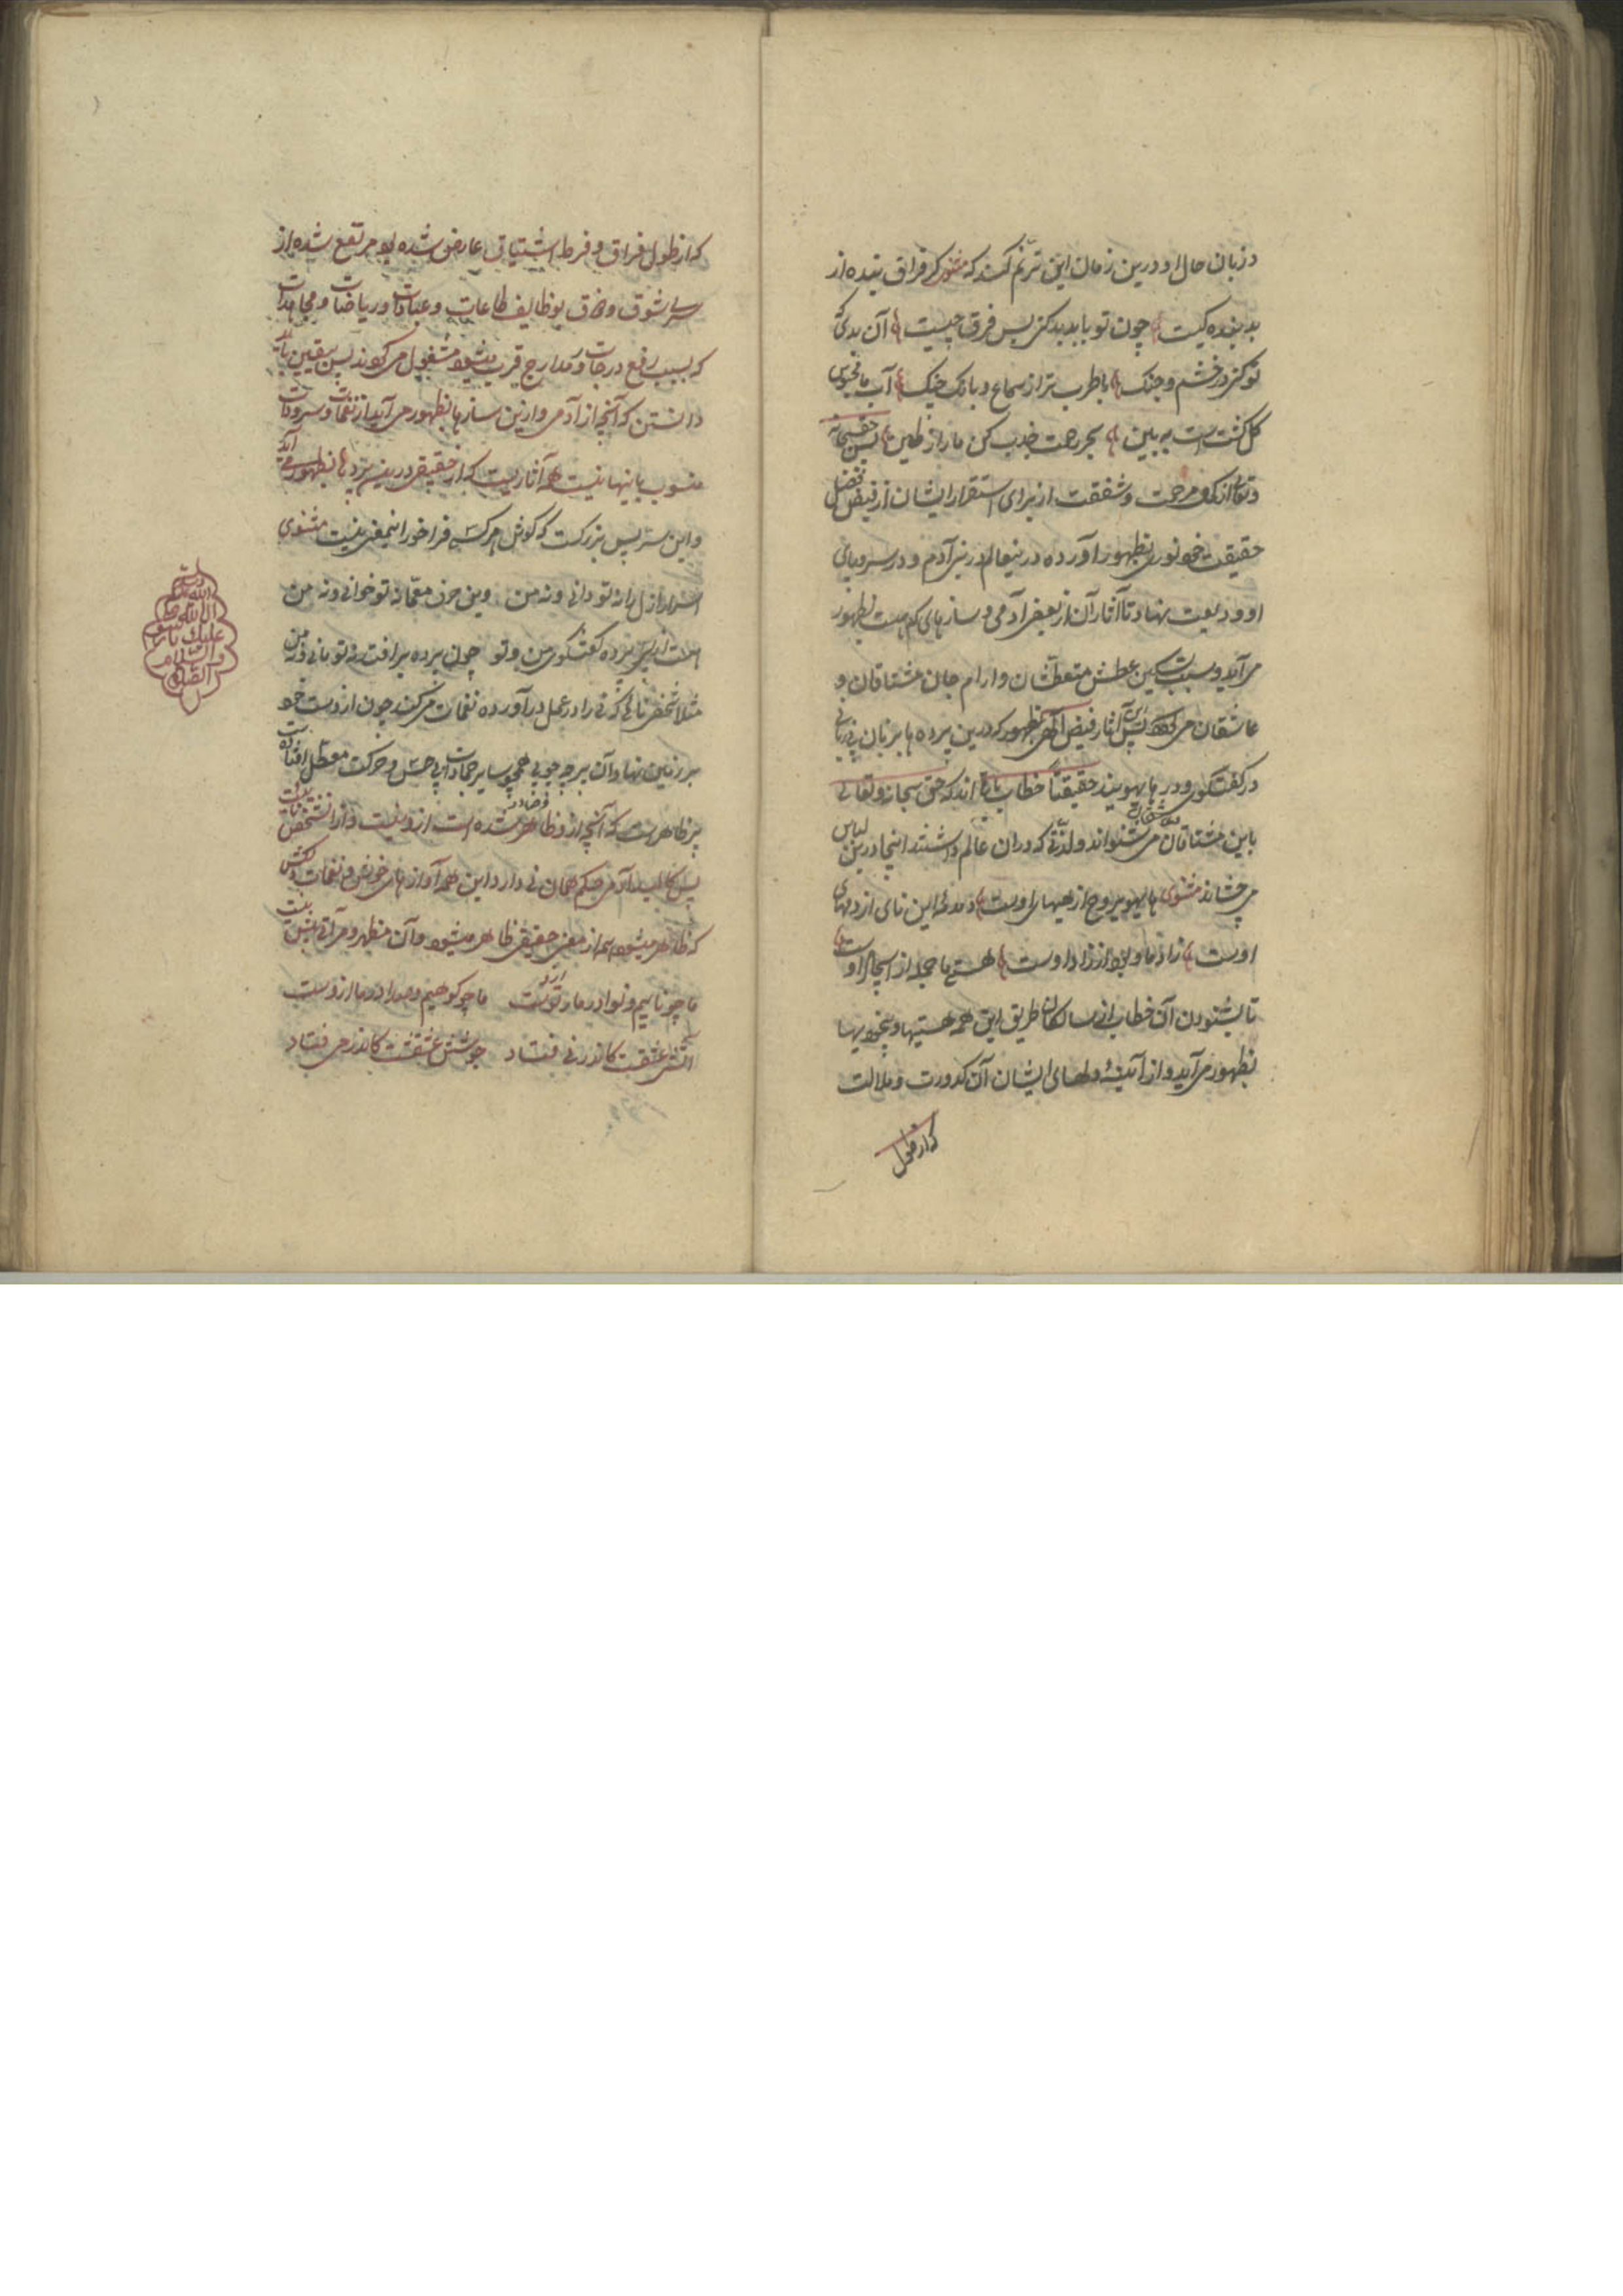 و زبان حال او درین زمان این ترنم کند که مثنوی گر فراق بنده از
بد بندگیست چون تو با بد بد کنی پس فرق چیست آن بدی که
تو کنی در خشم و جنگ باطرب تر از سماع و بانگ چنگ آب ما محبوس
گل گشتست به بین بحر رحمت جذب کن ما را ز طین پس حق سبحانه
و تعالی از کرم و مرحمت و شفقت از برای استقرار ایشان از فیض فضل
حقیقت خود نوری بظهور آورده در نیعالم در نی آدم و در سرو پای
او ودیعت نهاد تا آثار آن از بعضی آدمی و سازهای که هست بظهور
می آید و سبب تسکین عطش متعطشان و آرام جان مشتاقان و
عاشقان می گردد پس این آثار فیض الهی بظهور که درین پرده ها بزبان بی زبانی
در گفتگوی و در هایهویند حقیقتاً خطاب اند که حق سبحانه و تعالی
باین مشتاقان می شنواند و لذتی که دران عالم داشتند اینجا درین لباس
می چشاند مثنوی هایهوی روح از هیهای اوست دمدمه این نای از دمهای
اوست باد ما و بود ما از داد اوست هستی ما جمله از ایجاد اوست
تا بشنودن آن خطاب از سالکان طریق این همه هستیها و بیخودیها
بظهور می آید و از آئینه دلهای ایشان آن کدورت و ملالت
که از طول
که از طول فراق و فرط اشتیاق عارض شده بود مرتفع شده از
سر شوق و ذوق بوظایف طاعات و عبادات و ریاضات و مجاهدات
که بسبب رفع درجات و مدارج قرب میشود مشغول می گردند پس یقین باید
دانستن که آنچه از آدمی و ازین سازها بظهور می آید از نغمات و سرودات
منسوب باینها نیست همه آثاریست که از حقیقی درین پردها بظهور می آید
و این سر بس بزرگست که گوش هر کسی فراخور اینمعنی نیست مثنوی
اسرار ازل را نه تو دانی و نه من وین حرف معما نه تو خوانی و نه من
هست از پس پرده گفتگوی من و تو چون پرده برافتد نه تو مانی و نه من
مثلا شخص نائی که نی را در عمل درآورده نغمات می کند چون از دست خود
بر زمین نهاد آن پرچه چوبی همچو سایر جمادات بی حس و حرکت معطل افتاده است
پس ظاهرست که آنچه از و ظاهر شده است از و نیست و از آنشخص نائیست
پس کالبد آدمی حکم همان نی دارد این همه آوازهای خوش و نغمات دلکش
که ظاهر میشود همه از مغنی حقیقی ظاهر میشود و آن مظهر و مرآتی بیش نیست
ما چو نائیم و نوا در ما ز تست ما چو کوهیم و صدا در ما ازوست
آتش عشقست کاندر نی فتاد جوشش عشقست کاندر می فتاد
الصلوة
والسلام
علیک یا رسول
الله